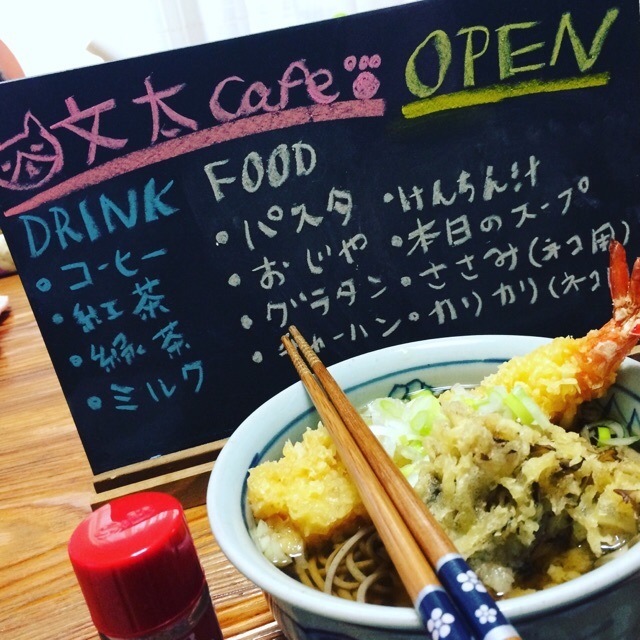 文太 cafe
OPEN
DRINK
・コーヒー
・紅茶
・緑茶
・ミルク
FOOD
・パスタ
・おじや
・グラタン
・チャーハン
・けんちん汁
・本日のスープ
・ささみ(ネコ用)
・カリカリ(ネコ